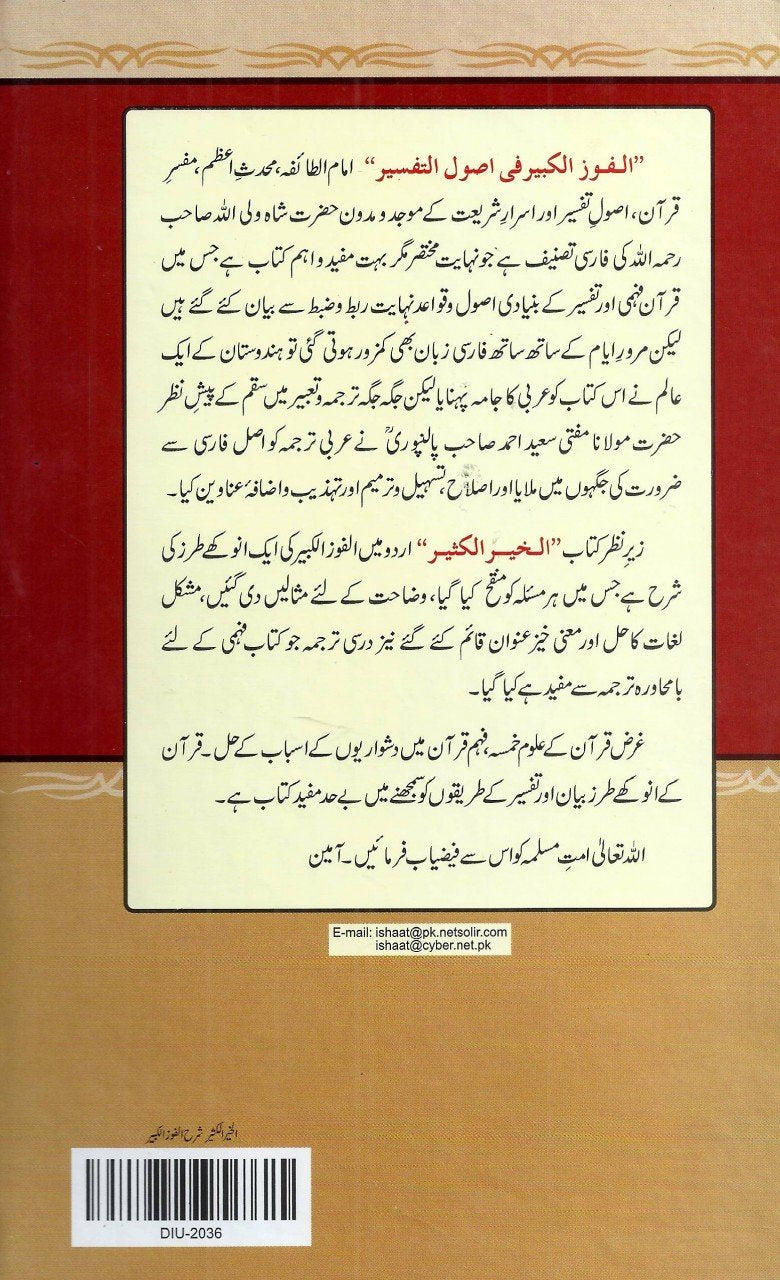 ”الفوز الکبیر فی اصول التفسیر“ امام الطائفہ، محدثِ اعظم، مفسرِ
قرآن، اصولِ تفسیر اور اسرارِ شریعت کے موجد و مدون حضرت شاہ ولی اللہ صاحب
رحمہ اللہ کی فارسی تصنیف ہے جو نہایت مختصر مگر بہت مفید و اہم کتاب ہے جس میں
قرآن فہمی اور تفسیر کے بنیادی اصول و قواعد نہایت ربط و ضبط سے بیان کئے گئے ہیں
لیکن مرورِ ایام کے ساتھ ساتھ فارسی زبان بھی کمزور ہوتی گئی تو ہندوستان کے ایک
عالم نے اس کتاب کو عربی کا جامہ پہنایا لیکن جگہ جگہ ترجمہ و تعبیر میں سقم کے پیشِ نظر
حضرت مولانا مفتی سعید احمد صاحب پالنپوریؒ نے عربی ترجمہ کو اصل فارسی سے
ضرورت کی جگہوں میں ملایا اور اصلاح، تسہیل و ترمیم اور تہذیب و اضافۂ عناوین کیا۔
زیرِ نظر کتاب ”الخیر الکثیر“ اردو میں الفوز الکبیر کی ایک انوکھے طرز کی
شرح ہے جس میں ہر مسئلہ کو منقح کیا گیا، وضاحت کے لئے مثالیں دی گئیں، مشکل
لغات کا حل اور معنی خیز عنوان قائم کئے گئے نیز درسی ترجمہ جو کتاب فہمی کے لئے
بامحاورہ ترجمہ سے مفید ہے کیا گیا۔
غرض قرآن کے علوم خمسہ، فہم قرآن میں دشواریوں کے اسباب کے حل۔ قرآن
کے انوکھے طرز بیان اور تفسیر کے طریقوں کو سمجھنے میں بے حد مفید کتاب ہے۔
اللہ تعالیٰ امتِ مسلمہ کو اس سے فیضیاب فرمائیں۔ آمین
E-mail: ishaat@pk.netsolir.com
ishaat@cyber.net.pk
الخیر الکثیر شرح الفوز الکبیر
DIU-2036